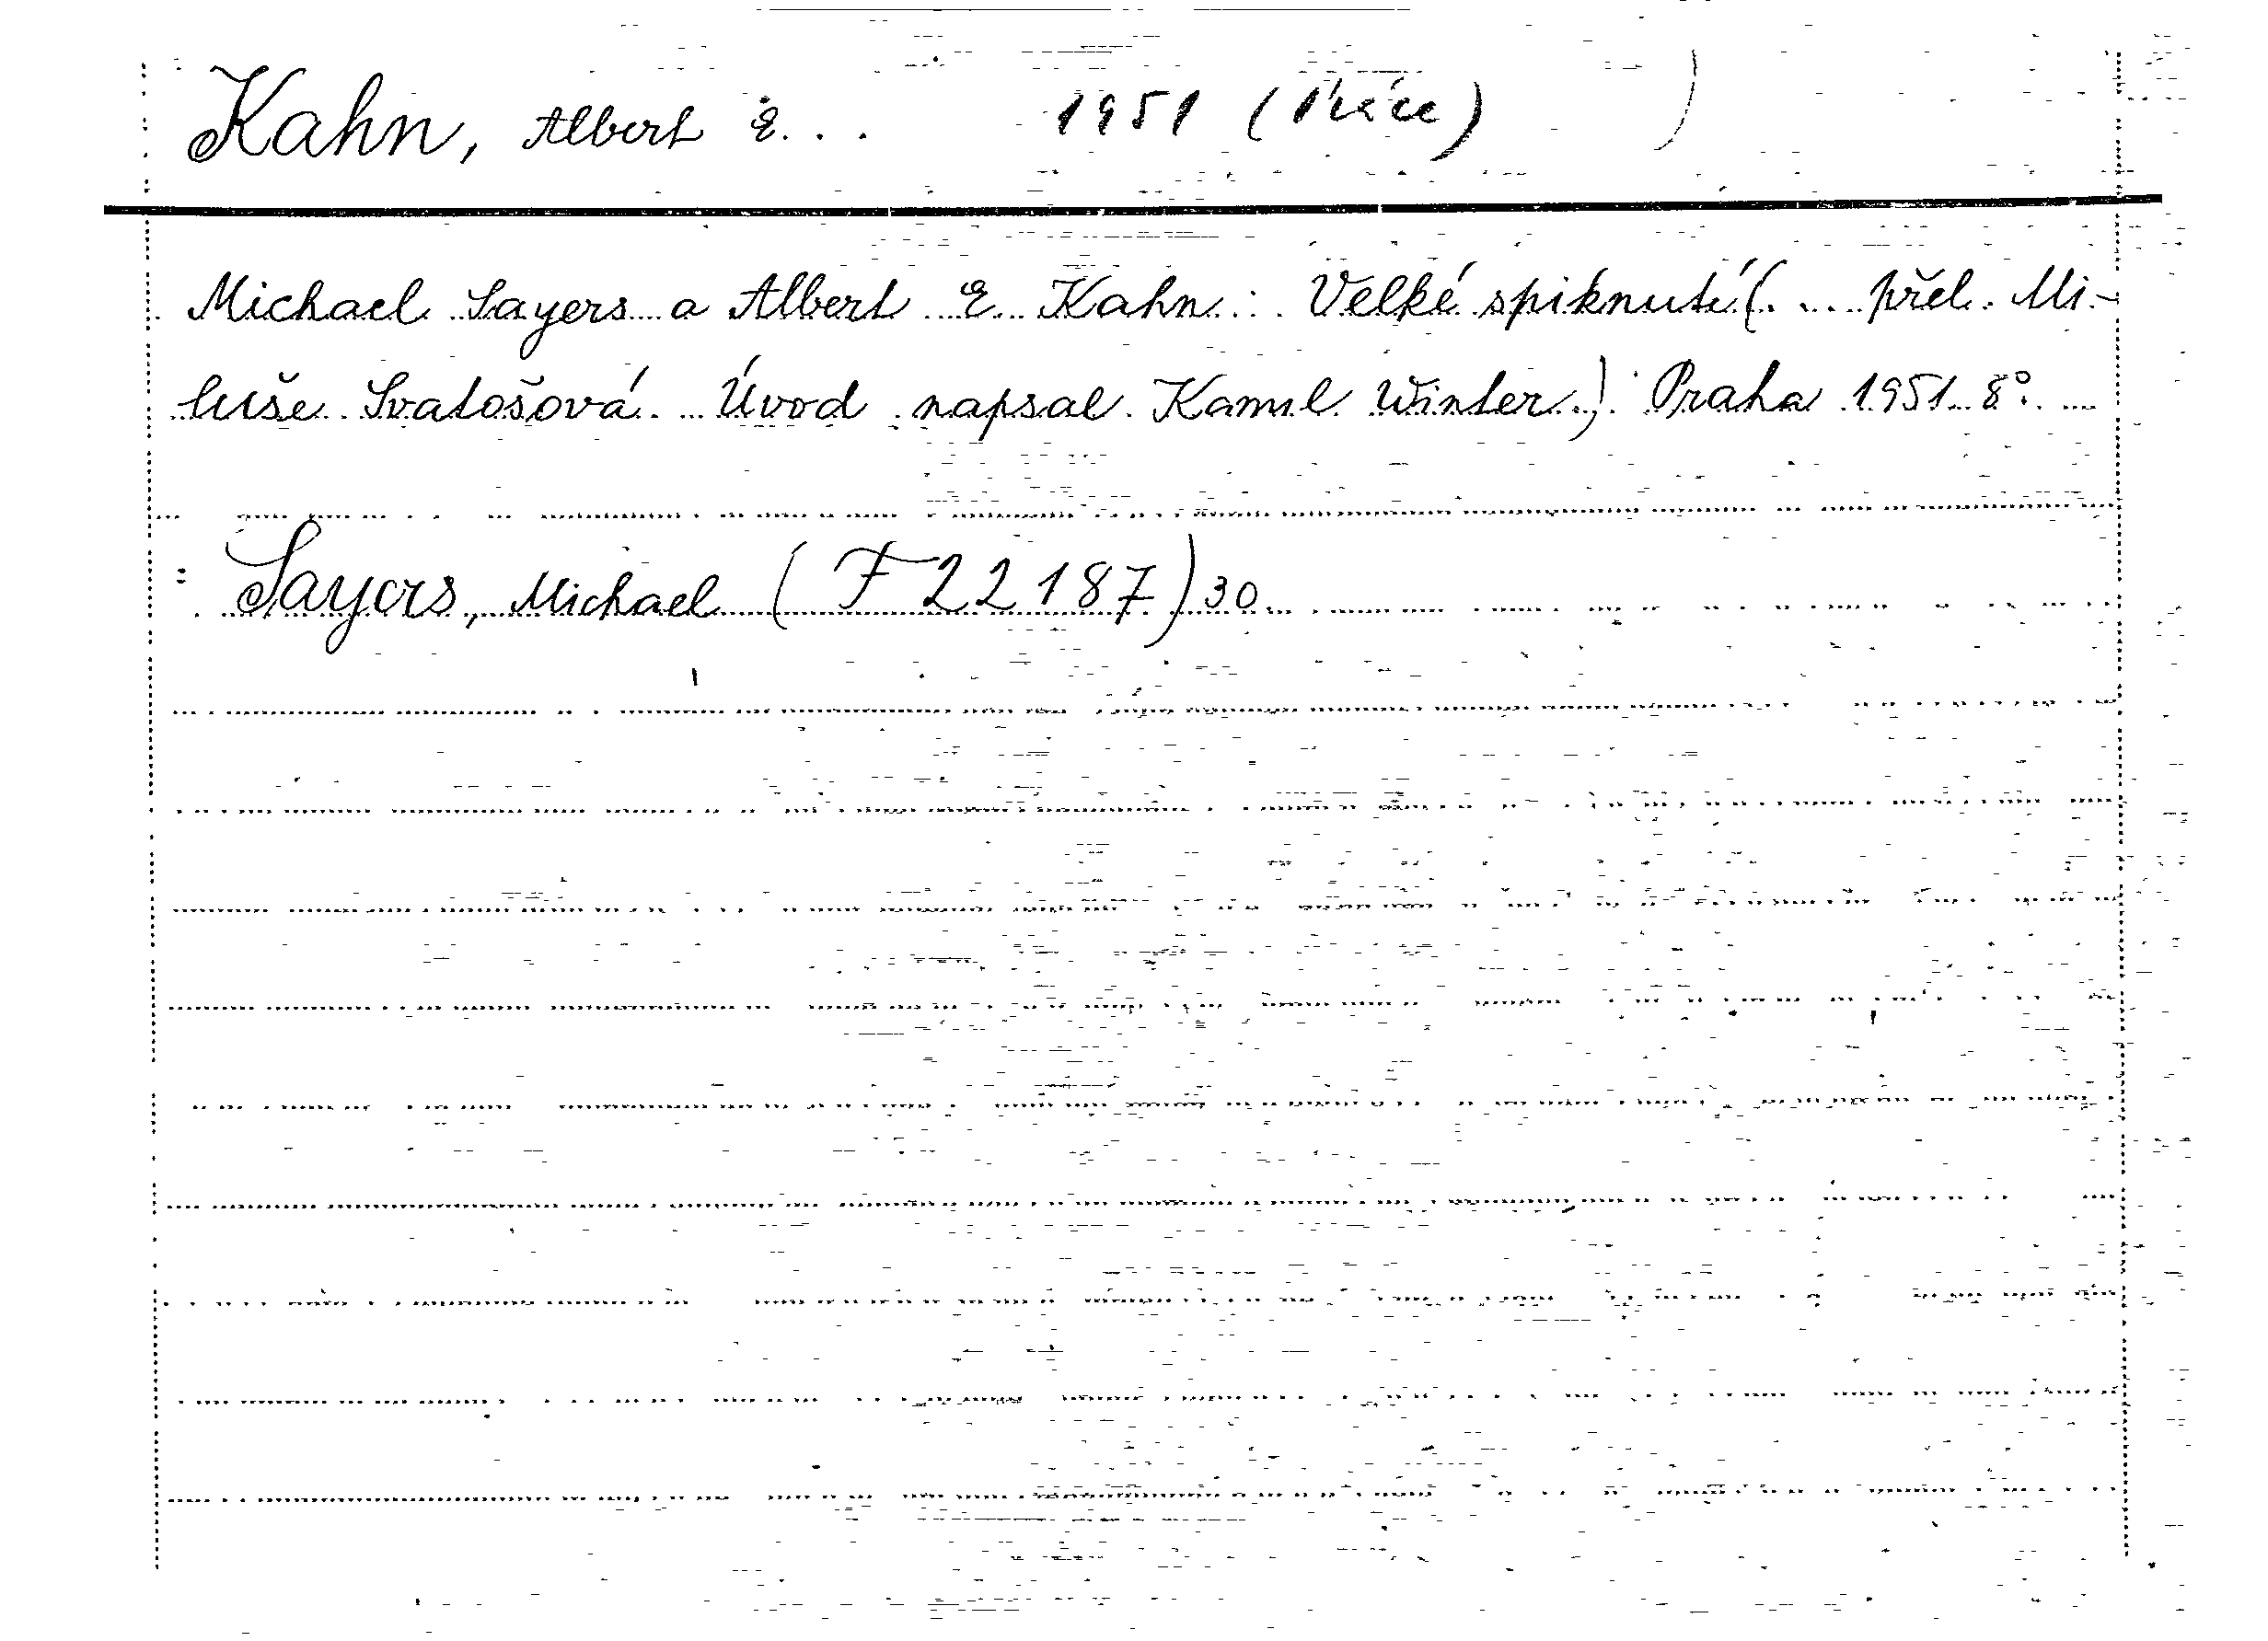 Kahn, Albert E... 1951 (Práce) )
Michael Sayers a Albert E. Kahn: Velké spiknutí (... přel. Mi-
luše Svatošová. Úvod napsal Kamil Winter.) Praha 1951. 8°.
: Sayers, Michael (F 22187) 30